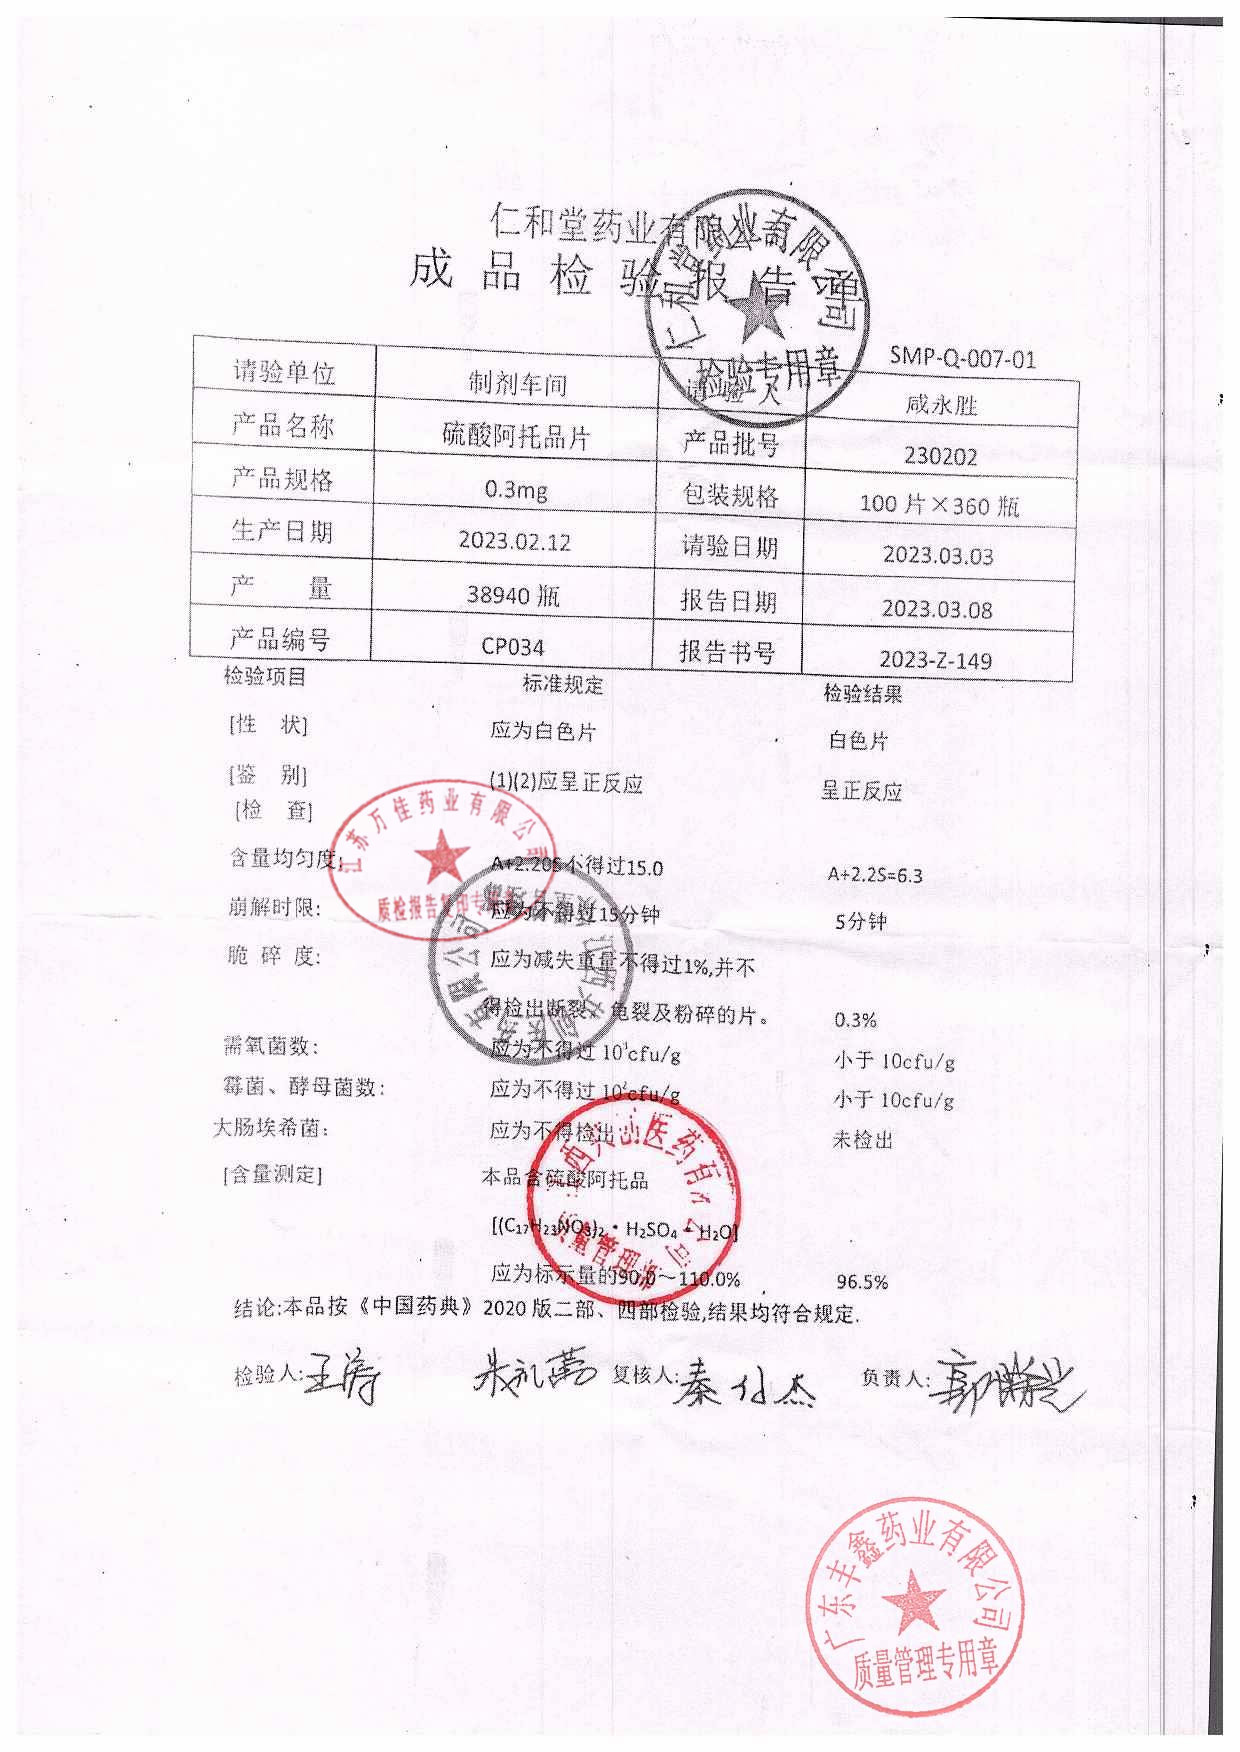 仁和堂药业有限公司
成品检验报告单
SMP-Q-007-01
请验单位 制剂车间 请验人 咸永胜
产品名称 硫酸阿托品片 产品批号 230202
产品规格 0.3mg 包装规格 100片×360瓶
生产日期 2023.02.12 请验日期 2023.03.03
产 量 38940瓶 报告日期 2023.03.08
产品编号 CP034 报告书号 2023-Z-149
检验项目 标准规定 检验结果
[性 状] 应为白色片 白色片
[鉴 别] (1)(2)应呈正反应 呈正反应
[检 查]
含量均匀度: A+2.20S不得过15.0 A+2.2S=6.3
崩解时限: 应为不得过15分钟 5分钟
脆 碎 度: 应为减失重量不得过1%,并不
得检出断裂、龟裂及粉碎的片。 0.3%
需氧菌数: 应为不得过 10³cfu/g 小于 10cfu/g
霉菌、酵母菌数: 应为不得过 10²cfu/g 小于 10cfu/g
大肠埃希菌: 应为不得检出 未检出
[含量测定] 本品含硫酸阿托品
[(C₁₇H₂₃NO₃)₂·H₂SO₄·H₂O]
应为标示量的90.0～110.0% 96.5%
结论:本品按《中国药典》2020版二部、四部检验,结果均符合规定.
检验人:王涛 复核人:秦仕杰 负责人:
仁和堂药业有限公司
检验专用章
江苏万佳药业有限公司
质检报告复印专用章
质量管理部
广东丰鑫药业有限公司
质量管理专用章